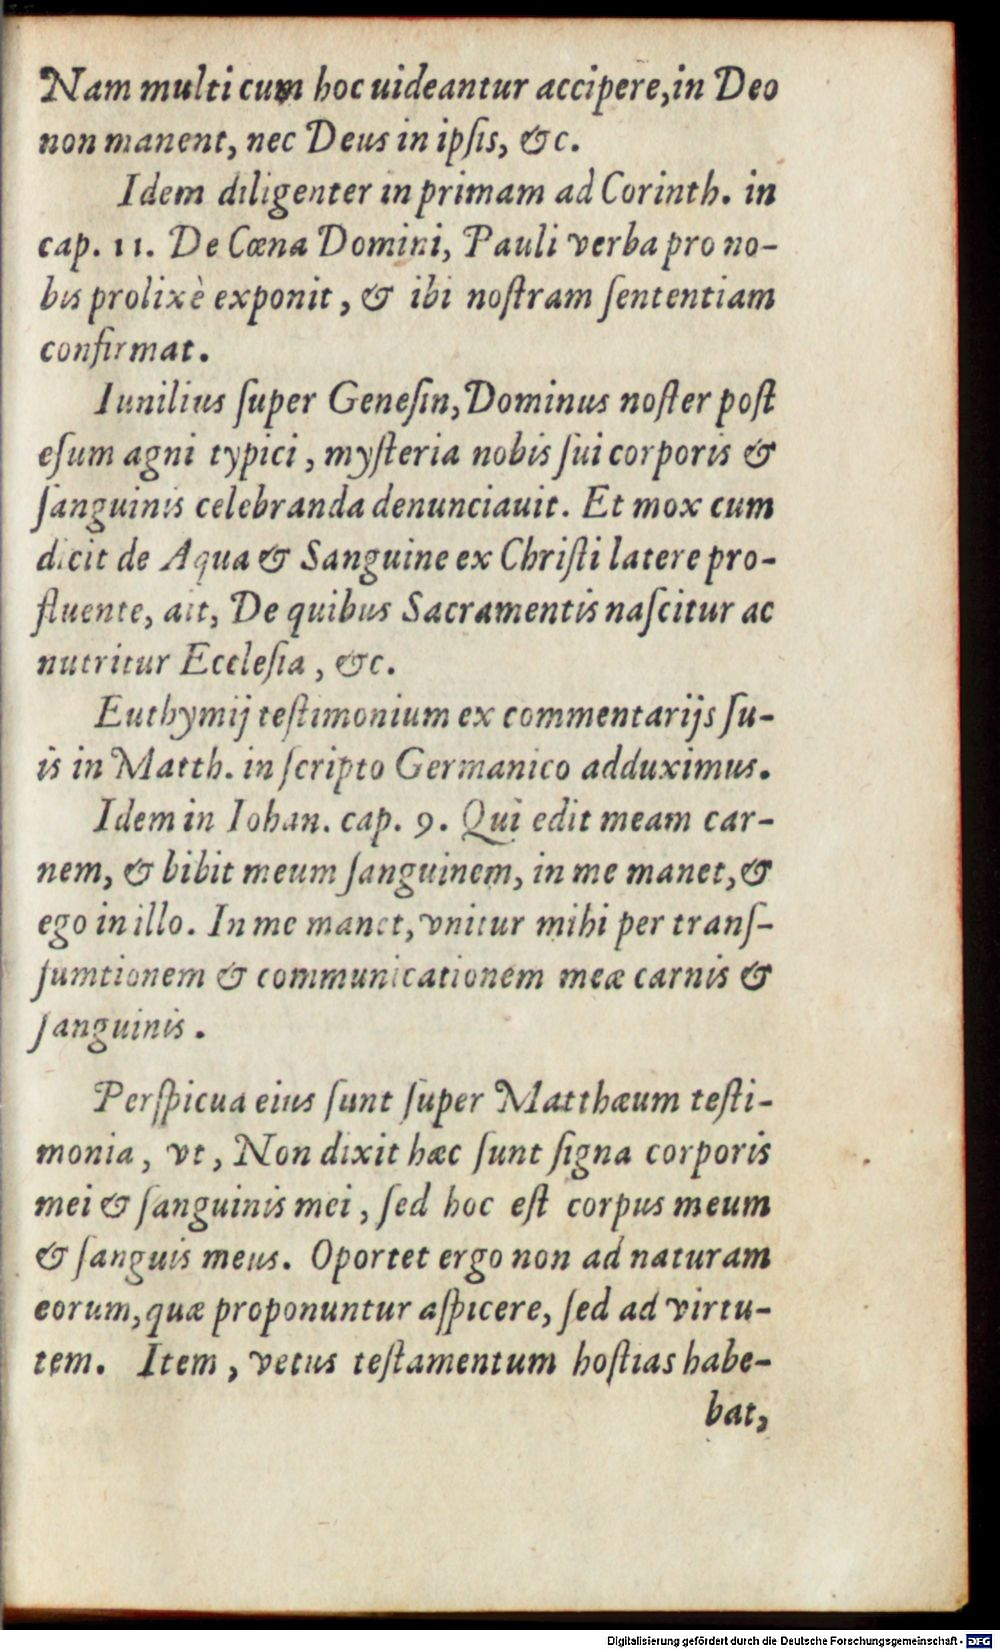 Nam multi cum hoc uideantur accipere, in Deo
non manent, nec Deus in ipſis, &c.
Idem diligenter in primam ad Corinth. in
cap. 11. De Cœna Domini, Pauli verba pro no-
bis prolixè exponit, & ibi noſtram ſententiam
confirmat.
Iunilius ſuper Geneſin, Dominus noſter poſt
eſum agni typici, myſteria nobis ſui corporis &
ſanguinis celebranda denunciauit. Et mox cum
dicit de Aqua & Sanguine ex Chriſti latere pro-
fluente, ait, De quibus Sacramentis naſcitur ac
nutritur Eccleſia, &c.
Euthymij teſtimonium ex commentarijs ſu-
is in Matth. in ſcripto Germanico adduximus.
Idem in Iohan. cap. 9. Qui edit meam car-
nem, & bibit meum ſanguinem, in me manet, &
ego in illo. In me manet, vnitur mihi per tranſ-
ſumtionem & communicationem meæ carnis &
ſanguinis.
Perſpicua eius ſunt ſuper Matthæum teſti-
monia, vt, Non dixit hæc ſunt ſigna corporis
mei & ſanguinis mei, ſed hoc eſt corpus meum
& ſanguis meus. Oportet ergo non ad naturam
eorum, quæ proponuntur aſpicere, ſed ad virtu-
tem. Item, vetus teſtamentum hoſtias habe-
bat,
Digitalisierung gefördert durch die Deutsche Forschungsgemeinschaft - DFG